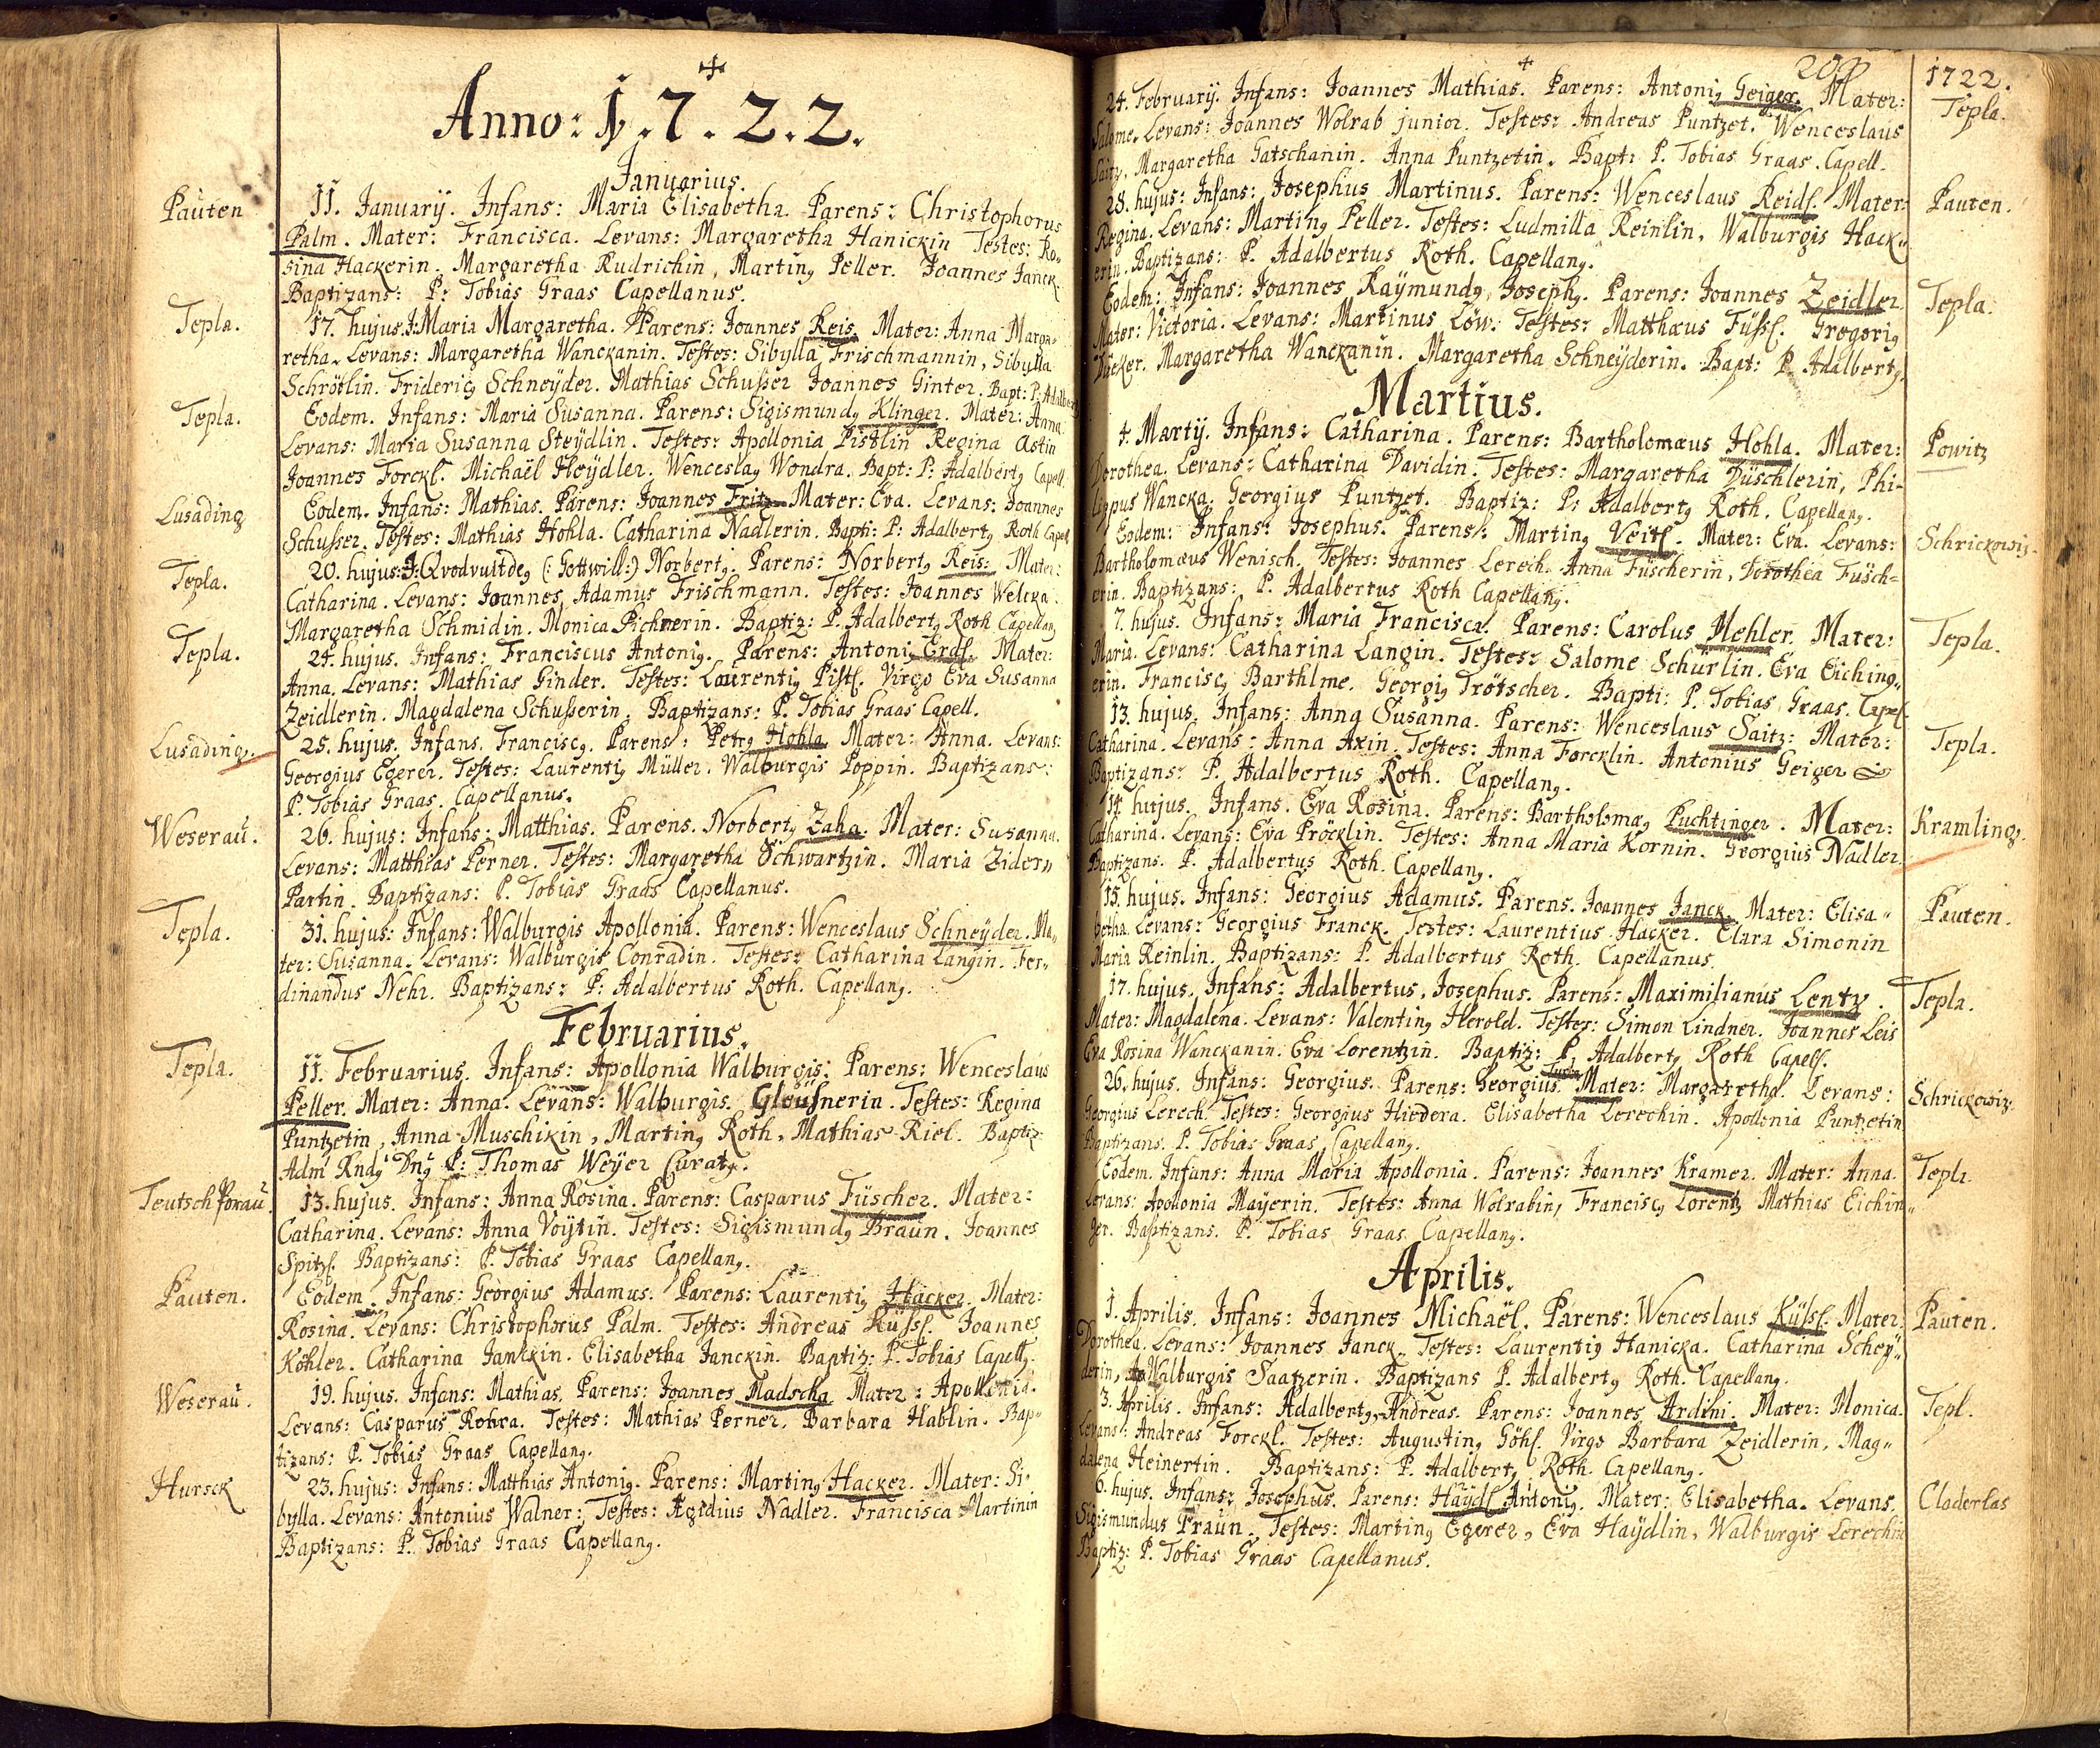 Anno: 1.7.2.2.
Januarius.
Pauten
11. Januarÿ. Infans: Maria Elisabetha. Parens: Christophorus
Palm. Mater: Francisca. Levans: Margaretha Hanickin Testes: Ro„
sina Hackerin. Margaretha Rudrichin, Martinꝯ Peller. Joannes Janck.
Baptizans: P: Tobias Graas Capellanus.
Tepla.
17. hujus. J: Maria Margaretha. Parens: Joannes Reis. Mater: Anna Marga„
retha. Levans: Margaretha Wanckanin. Testes: Sibylla Frischmannin, Sibylla
Schrötlin. Fridericꝯ Schneÿder. Mathias Schusser Joannes Ginter. Bapt: P: Adalbertꝯ
Tepla.
Eodem. Infans: Maria Susanna. Parens: Sigismundꝯ Klinger. Mater: Anna.
Levans: Maria Susanna Steÿdlin. Testes: Apollonia Pistlin Regina Astin
Joannes Forckl. Michaël Heÿdler. Wenceslaꝯ Wondra. Bapt: P: Adalbertꝯ Capell.
Lusading
Eodem. Infans: Mathias. Parens: Joannes Fritz. Mater: Eva. Levans: Joannes
Schusser. Testes: Mathias Hohla. Catharina Nadlerin. Bapti: P: Adalbertꝯ Roth Capell.
Tepla.
20. hujus: J: Qvodvultdeꝯ (: Gottwill:) Norbertꝯ. Parens: Norbertꝯ Reis: Mater:
Catharina. Levans: Joannes Adamus Frischmann. Testes: Joannes Welcka.
Margaretha Schmidin. Monica Pichnerin. Baptiz: P. Adalbertꝯ Roth Capellanꝯ
Tepla.
24. hujus. Infans: Franciscus Antoniꝯ. Parens: Antoniꝯ Erdl. Mater:
Anna. Levans: Mathias Ginder. Testes: Laurentiꝯ Pistl. Virgo Eva Susanna
Zeidlerin. Magdalena Schusserin. Baptizans: P. Tobias Graas Capell.
Lusading.
25. hujus. Infans. Franciscꝯ. Parens: Petrꝯ Hohla. Mater: Anna. Levans:
Georgius Egerer. Testes: Laurentiꝯ Müller. Walburgis Poppin. Baptizans:
P. Tobias Graas. Capellanus.
Weserau.
26. hujus: Infans: Matthias. Parens. Norbertꝯ Zaha. Mater: Susanna.
Levans: Matthias Perner. Testes: Margaretha Schwartzin. Maria Zider„
Partin. Baptizans: P. Tobias Graas Capellanus.
Tepla.
31. hujus: Infans: Walburgis Apollonia. Parens: Wenceslaus Schneÿder. Ma„
ter: Susanna. Levans: Walburgis Conradin. Testes: Catharina Langin. Fer„
dinandus Nehr. Baptizans: P: Adalbertus Roth. Capellanꝯ.
Februarius.
Tepla.
11. Februarius. Infans: Apollonia Walburgis: Parens: Wenceslaus
Peller. Mater: Anna. Levans: Walburgis Gleüsnerin. Testes: Regina
Puntzetin, Anna Muschikin, Martinꝯ Roth, Mathias Riel. Baptiz:
Adm Rndꝯ Dnꝯ P: Thomas Weÿer Curatꝯ.
Teutsch Porau.
13. hujus. Infans: Anna Rosina. Parens: Casparus Füscher. Mater:
Catharina. Levans: Anna Voÿtin. Testes: Sigismundꝯ Braun. Joannes
Spitzl. Baptizans: P. Tobias Graas Capellanꝯ.
Pauten.
Eodem. Infans: Georgius Adamus. Parens: Laurentiꝯ Hacker. Mater:
Rosina. Levans: Christophorus Palm. Testes: Andreas Küssl. Joannes
Köhler. Catharina Janckin. Elisabetha Janckin. Baptiz: P. Tobias Capellꝯ.
Weserau.
19. hujus. Infans: Mathias. Parens: Joannes Madscha. Mater: Apollonia.
Levans: Casparus Rohra. Testes: Mathias Perner. Barbara Hablin. Bap„
tizans: P. Tobias Graas Capellanꝯ.
Hursck
23. hujus: Infans: Matthias Antoniꝯ. Parens: Martinꝯ Hacker. Mater: Si„
bylla. Levans: Antonius Walner: Testes: Ægidius Nadler. Francisca Martinin
Baptizans: P. Tobias Graas Capellanꝯ.
1722.
24. Februarÿ. Infans: Joannes Mathias. Parens: Antoniꝯ Geiger. Mater:
Tepla.
Salome. Levans: Joannes Wolrab junior. Testes: Andreas Puntzet. Wenceslaus
Saitz. Margaretha Gatschanin. Anna Puntzetin. Bapt: P. Tobias Graas. Capell.
28. hujus: Infans: Josephus Martinus. Parens: Wenceslaus Reidl. Mater:
Pauten.
Regina. Levans: Martinꝯ Peller. Testes: Ludmilla Reinlin, Walburgis Hack„
erin. Baptizans: P. Adalbertus Roth. Capellanꝯ.
Eodem: Infans: Joannes Raÿmundꝯ, Josephꝯ. Parens: Joannes Zeidler.
Tepla.
Mater: Victoria. Levans: Martinus Löw. Testes: Matthæus Füssl. Gregoriꝯ
Margaretha Wanckanin. Margaretha Schneÿderin. Bapt: P. Adalbertꝯ.
Martius.
4. Martÿ. Infans: Catharina. Parens: Bartholomæus Hohla. Mater:
Powitz
Dorothea. Levans: Catharina Davidin. Testes: Margaretha Düschlerin, Phi-
lippus Wancka. Georgius Puntzet. Baptiz: P: Adalbertꝯ Roth. Capellanꝯ.
Eodem: Infans: Josephus. Parens: Martinꝯ Veitl. Mater: Eva. Levans:
Schrickowiz.
Bartholomæus Wenisch. Testes: Joannes Lerech. Anna Füscherin, Dorothea Füsch=
erin. Baptizans: P. Adalbertus Roth Capellanꝯ.
7. hujus. Infans: Maria Francisca. Parens: Carolus Mehler. Mater:
Tepla.
Maria. Levans: Catharina Langin. Testes: Salome Schürlin. Eva Eiching„
erin. Franciscꝯ Barthlme. Georgiꝯ Trötscher. Bapti: P. Tobias Graas. Capel.
13. hujus. Infans: Anna Susanna. Parens: Wenceslaus Saitz: Mater:
Tepla.
Catharina. Levans: Anna Axin. Testes: Anna Forcklin. Antonius Geiger
Baptizans: P. Adalbertus Roth. Capellanꝯ.
14. hujus. Infans. Eva Rosina. Parens: Bartholomæꝯ Puchtinger. Mater:
Kramling.
Catharina. Levans: Eva Pröcklin. Testes: Anna Maria Kornin. Georgius Nadler.
Baptizans. P. Adalbertus Roth. Capellanꝯ.
15. hujus. Infans: Georgius Adamus. Parens. Joannes Janck. Mater: Elisa„
Pauten.
betha. Levans: Georgius Franck. Testes: Laurentius Hacker. Clara Simonin
Maria Reinlin. Baptizans: P. Adalbertus Roth. Capellanus.
17. hujus. Infans: Adalbertus, Josephus. Parens: Maximilianus Lentz.
Tepla.
Mater: Magdalena. Levans: Valentinꝯ Herold. Testes: Simon Lindner. Joannes Leis
Eva Rosina Wanckanin. Eva Lorentzin. Baptiz: P. Adalbertꝯ Roth Capell.
26. hujus. Infans: Georgius. Parens: Georgius. Mater: Margaretha. Levans:
Schrickowiz.
Georgius Lerech. Testes: Georgius Hiedera. Elisabetha Lerechin. Apollonia Puntzetin
Baptizans. P. Tobias Graas Capellanꝯ.
Eodem. Infans: Anna Maria Apollonia. Parens: Joannes Kramer. Mater: Anna.
Tepla.
Levans: Apollonia Maÿerin. Testes: Anna Wolrabin, Franciscꝯ Lorentz Mathias Eichin„
ger. Baptizans. P. Tobias Graas Capellanꝯ.
Aprilis.
1. Aprilis. Infans: Joannes Michaël. Parens: Wenceslaus Küssl. Mater:
Pauten.
Dorothea. Levans: Joannes Janck. Testes: Laurentiꝯ Hanicka. Catharina Scheÿ„
derin, Walburgis Saatzerin. Baptizans P. Adalbertꝯ Roth. Capellanꝯ.
3. Aprilis. Infans: Adalbertꝯ, Andreas. Parens: Joannes Ardini. Mater: Monica.
Tepl.
Levans: Andreas Forckl. Testes: Augustinꝯ Göhl. Virgo Barbara Zeidlerin, Mag„
dalena Heinertin. Baptizans: P. Adalbertꝯ Roth. Capellanꝯ.
6. hujus. Infans: Josephus. Parens: Haÿdl Antoniꝯ. Mater: Elisabetha. Levans.
Claderlas
Sigismundus Praun. Testes: Martinꝯ Egerer, Eva Haÿdlin, Walburgis Lerechin
Baptiz: P. Tobias Graas Capellanus.